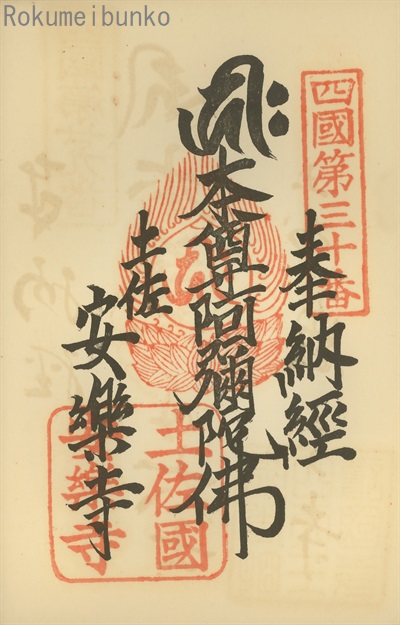 Rokumeibunko
四國第三十番
奉納經
本尊阿彌陀佛
土佐
安樂寺
土佐國
安樂寺